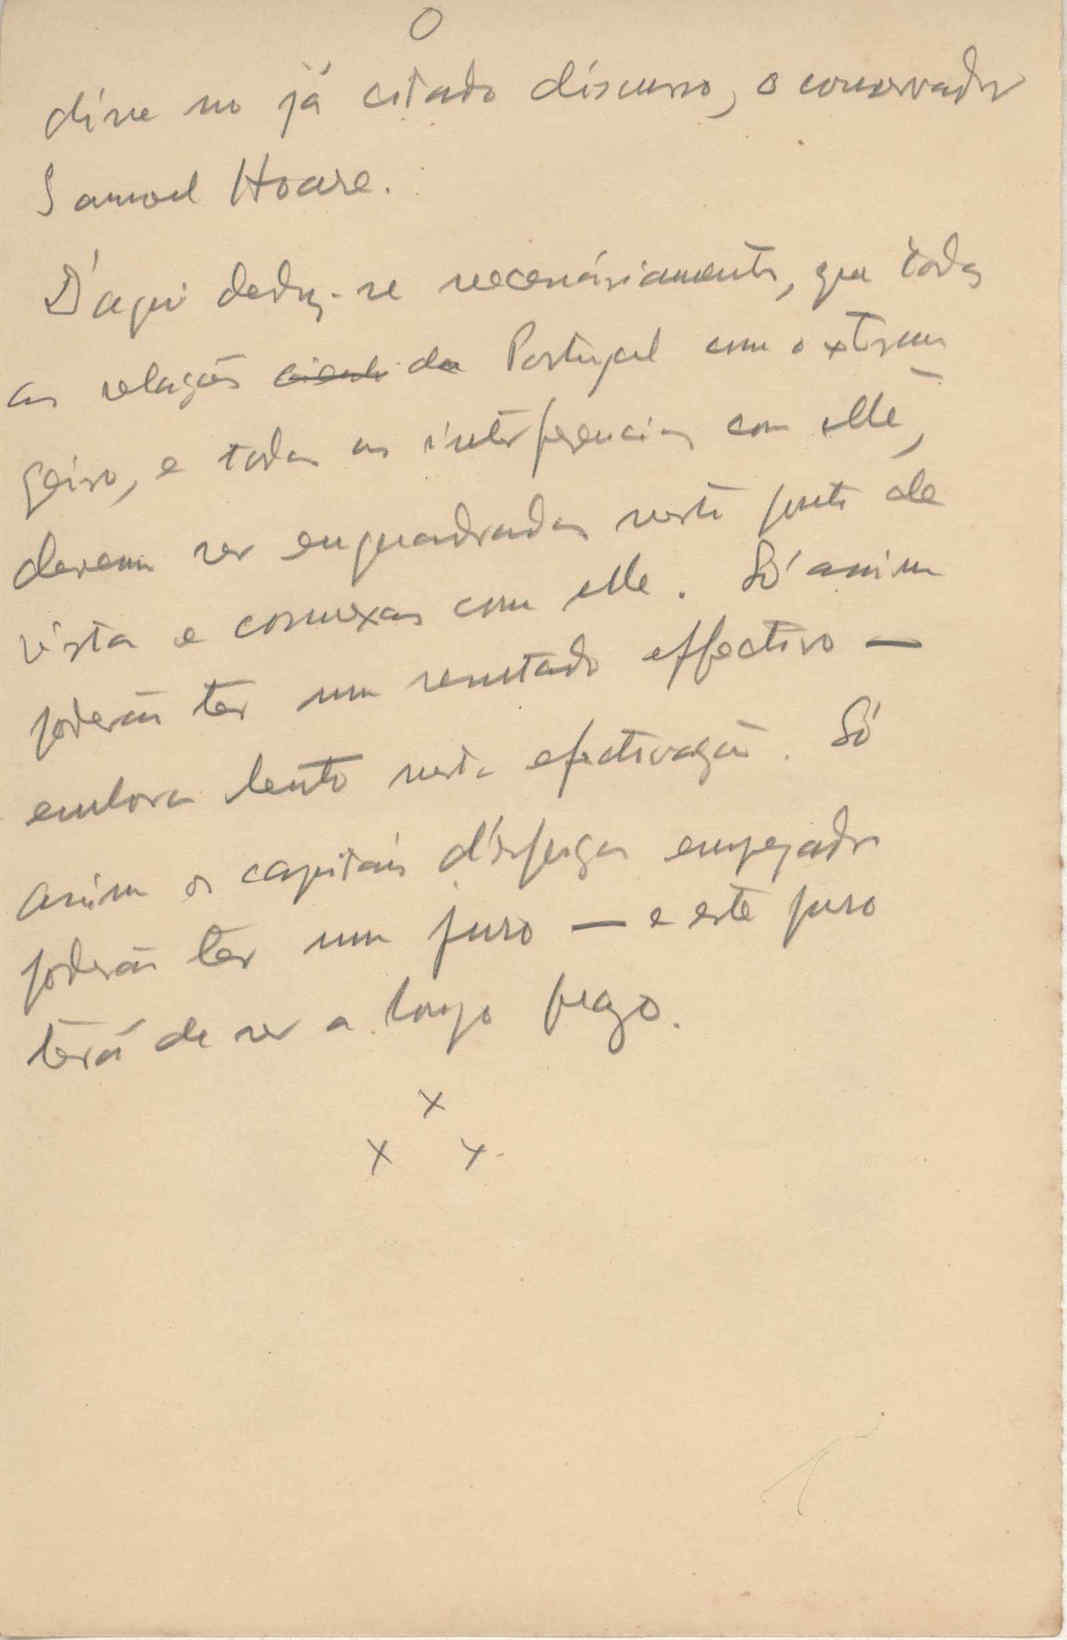 O
disse no já citado discurso, o conservador
Samuel Hoare.
D'aqui deduz-se necessáriamente, que todas
as relações de Portugal com o extran
geiro, e todas as interferencias com elle,
devem ser enquadradas neste ponto de
vista e connexas com elle. Só assim
poderão ter um resultado effectivo —
embora lento nesta efectivação. Só
assim os capitáis d'esforços empregados
poderão ter um juro — e este juro
terá de ser a longo prazo.
x
x x